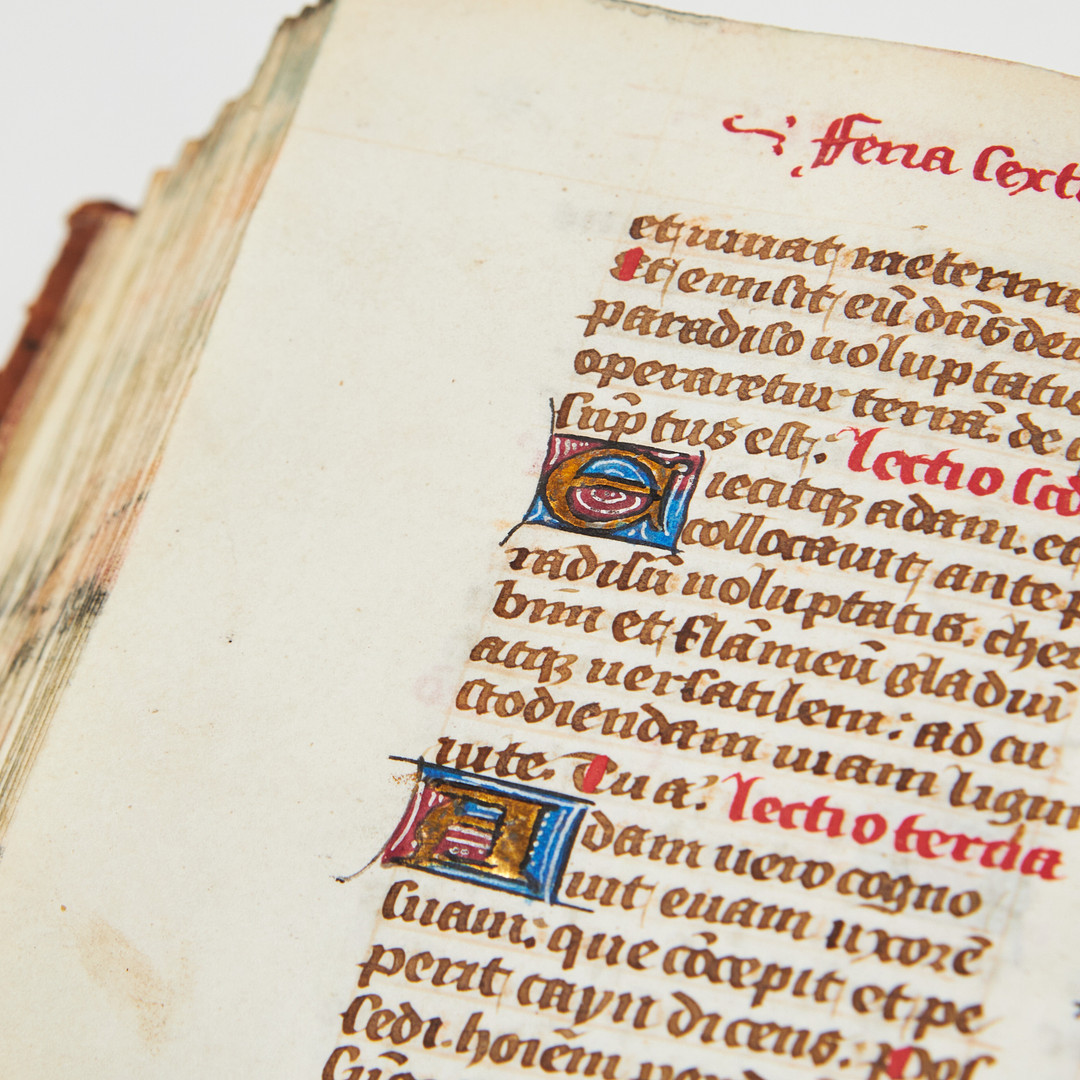 ffena sexta
et uiuat ineternu
Et emisit eū dn̄s deu
paradiso uoluptatis
operaretur terrā: de q
sup̄tus est: lectio scd̄
Eiecitqꝫ adam. et
collocauit ante p
radisū uoluptatis. cher
bim et flāmeū gladiū
atqꝫ uersatilem: ad cu
stodiendam uiam lign
uite. Tu a: lectio tercia
Adam uero cogno
uit euam uxorē
suam: que cōcepit et pe
perit cayn dicens: Pos
sedi hoiēm per